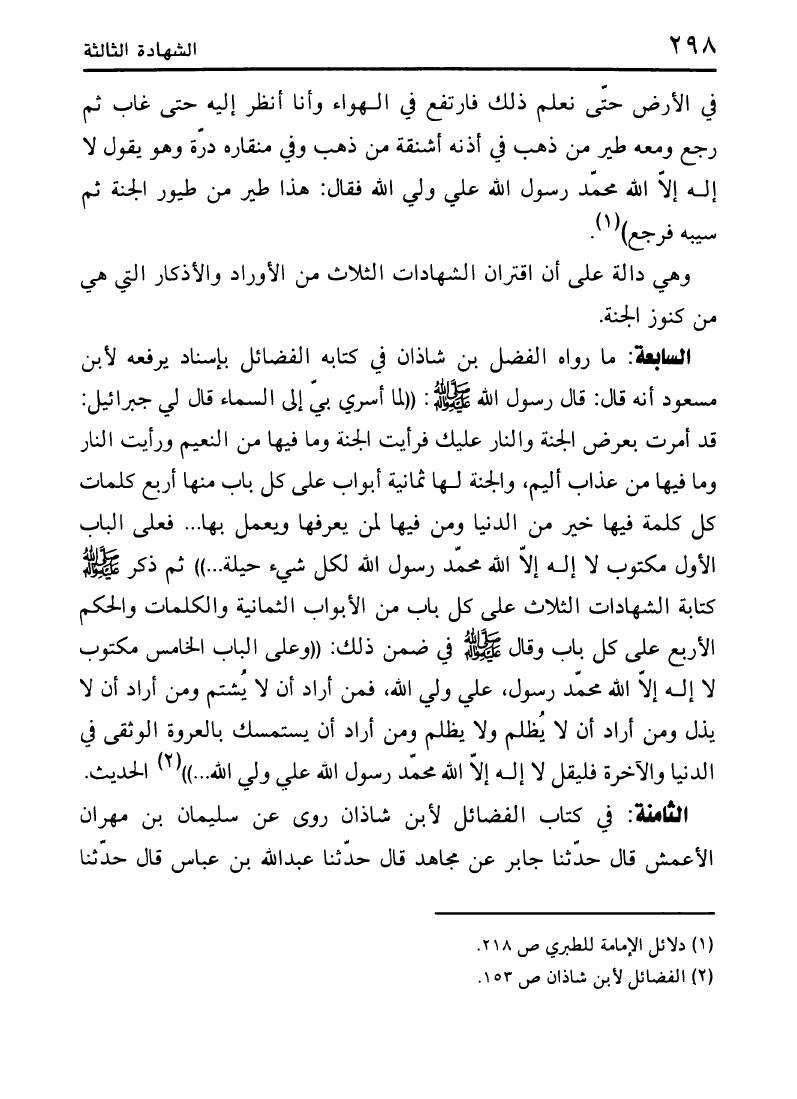 ٢٩٨ الشهادة الثالثة
في الأرض حتّى نعلم ذلك فارتفع في الـهواء وأنا أنظر إليه حتى غاب ثم
رجع ومعه طير من ذهب في أذنه أشنقة من ذهب وفي منقاره درّة وهو يقول لا
إلـه إلاّ الله محمّد رسول الله علي ولي الله فقال: هذا طير من طيور الجنة ثم
سيبه فرجع)(١).
وهي دالة على أن اقتران الشهادات الثلاث من الأوراد والأذكار التي هي
من كنوز الجنة.
السابعة: ما رواه الفضل بن شاذان في كتابه الفضائل بإسناد يرفعه لأبن
مسعود أنه قال: قال رسول الله ﷺ: ((لما أسري بيّ إلى السماء قال لي جبرائيل:
قد أمرت بعرض الجنة والنار عليك فرأيت الجنة وما فيها من النعيم ورأيت النار
وما فيها من عذاب أليم، والجنة لـها ثمانية أبواب على كل باب منها أربع كلمات
كل كلمة فيها خير من الدنيا ومن فيها لمن يعرفها ويعمل بها... فعلى الباب
الأول مكتوب لا إلـه إلاّ الله محمّد رسول الله لكل شيء حيلة...)) ثم ذكر ﷺ
كتابة الشهادات الثلاث على كل باب من الأبواب الثمانية والكلمات والحكم
الأربع على كل باب وقال ﷺ في ضمن ذلك: ((وعلى الباب الخامس مكتوب
لا إلـه إلاّ الله محمّد رسول، علي ولي الله، فمن أراد أن لا يُشتم ومن أراد أن لا
يذل ومن أراد أن لا يُظلم ولا يظلم ومن أراد أن يستمسك بالعروة الوثقى في
الدنيا والآخرة فليقل لا إلـه إلاّ الله محمّد رسول الله علي ولي الله...))(٢) الحديث.
الثامنة: في كتاب الفضائل لأبن شاذان روى عن سليمان بن مهران
الأعمش قال حدّثنا جابر عن مجاهد قال حدّثنا عبدالله بن عباس قال حدّثنا
(١) دلائل الإمامة للطبري ص ٢١٨.
(٢) الفضائل لأبن شاذان ص ١٥٣.